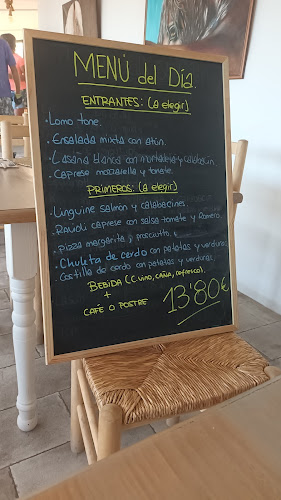 MENÚ del Día.
ENTRANTES: (a elegir)
· Lomo tone.
· Ensalada mixta con atún.
· Lasaña blanca con mortadela y calabacín.
· Caprese mozzarella y tomate.
PRIMEROS: (a elegir)
· Linguine salmón y calabacines.
· Ravioli caprese con salsa tomate y Romero.
· Pizza margarita y prosciutto.
· Chuleta de cerdo con patatas y verduras
· Costilla de cerdo con patatas y verduras.
BEBIDA (C. vino, caña, refresco).
+
CAFÉ O POSTRE
13'80€